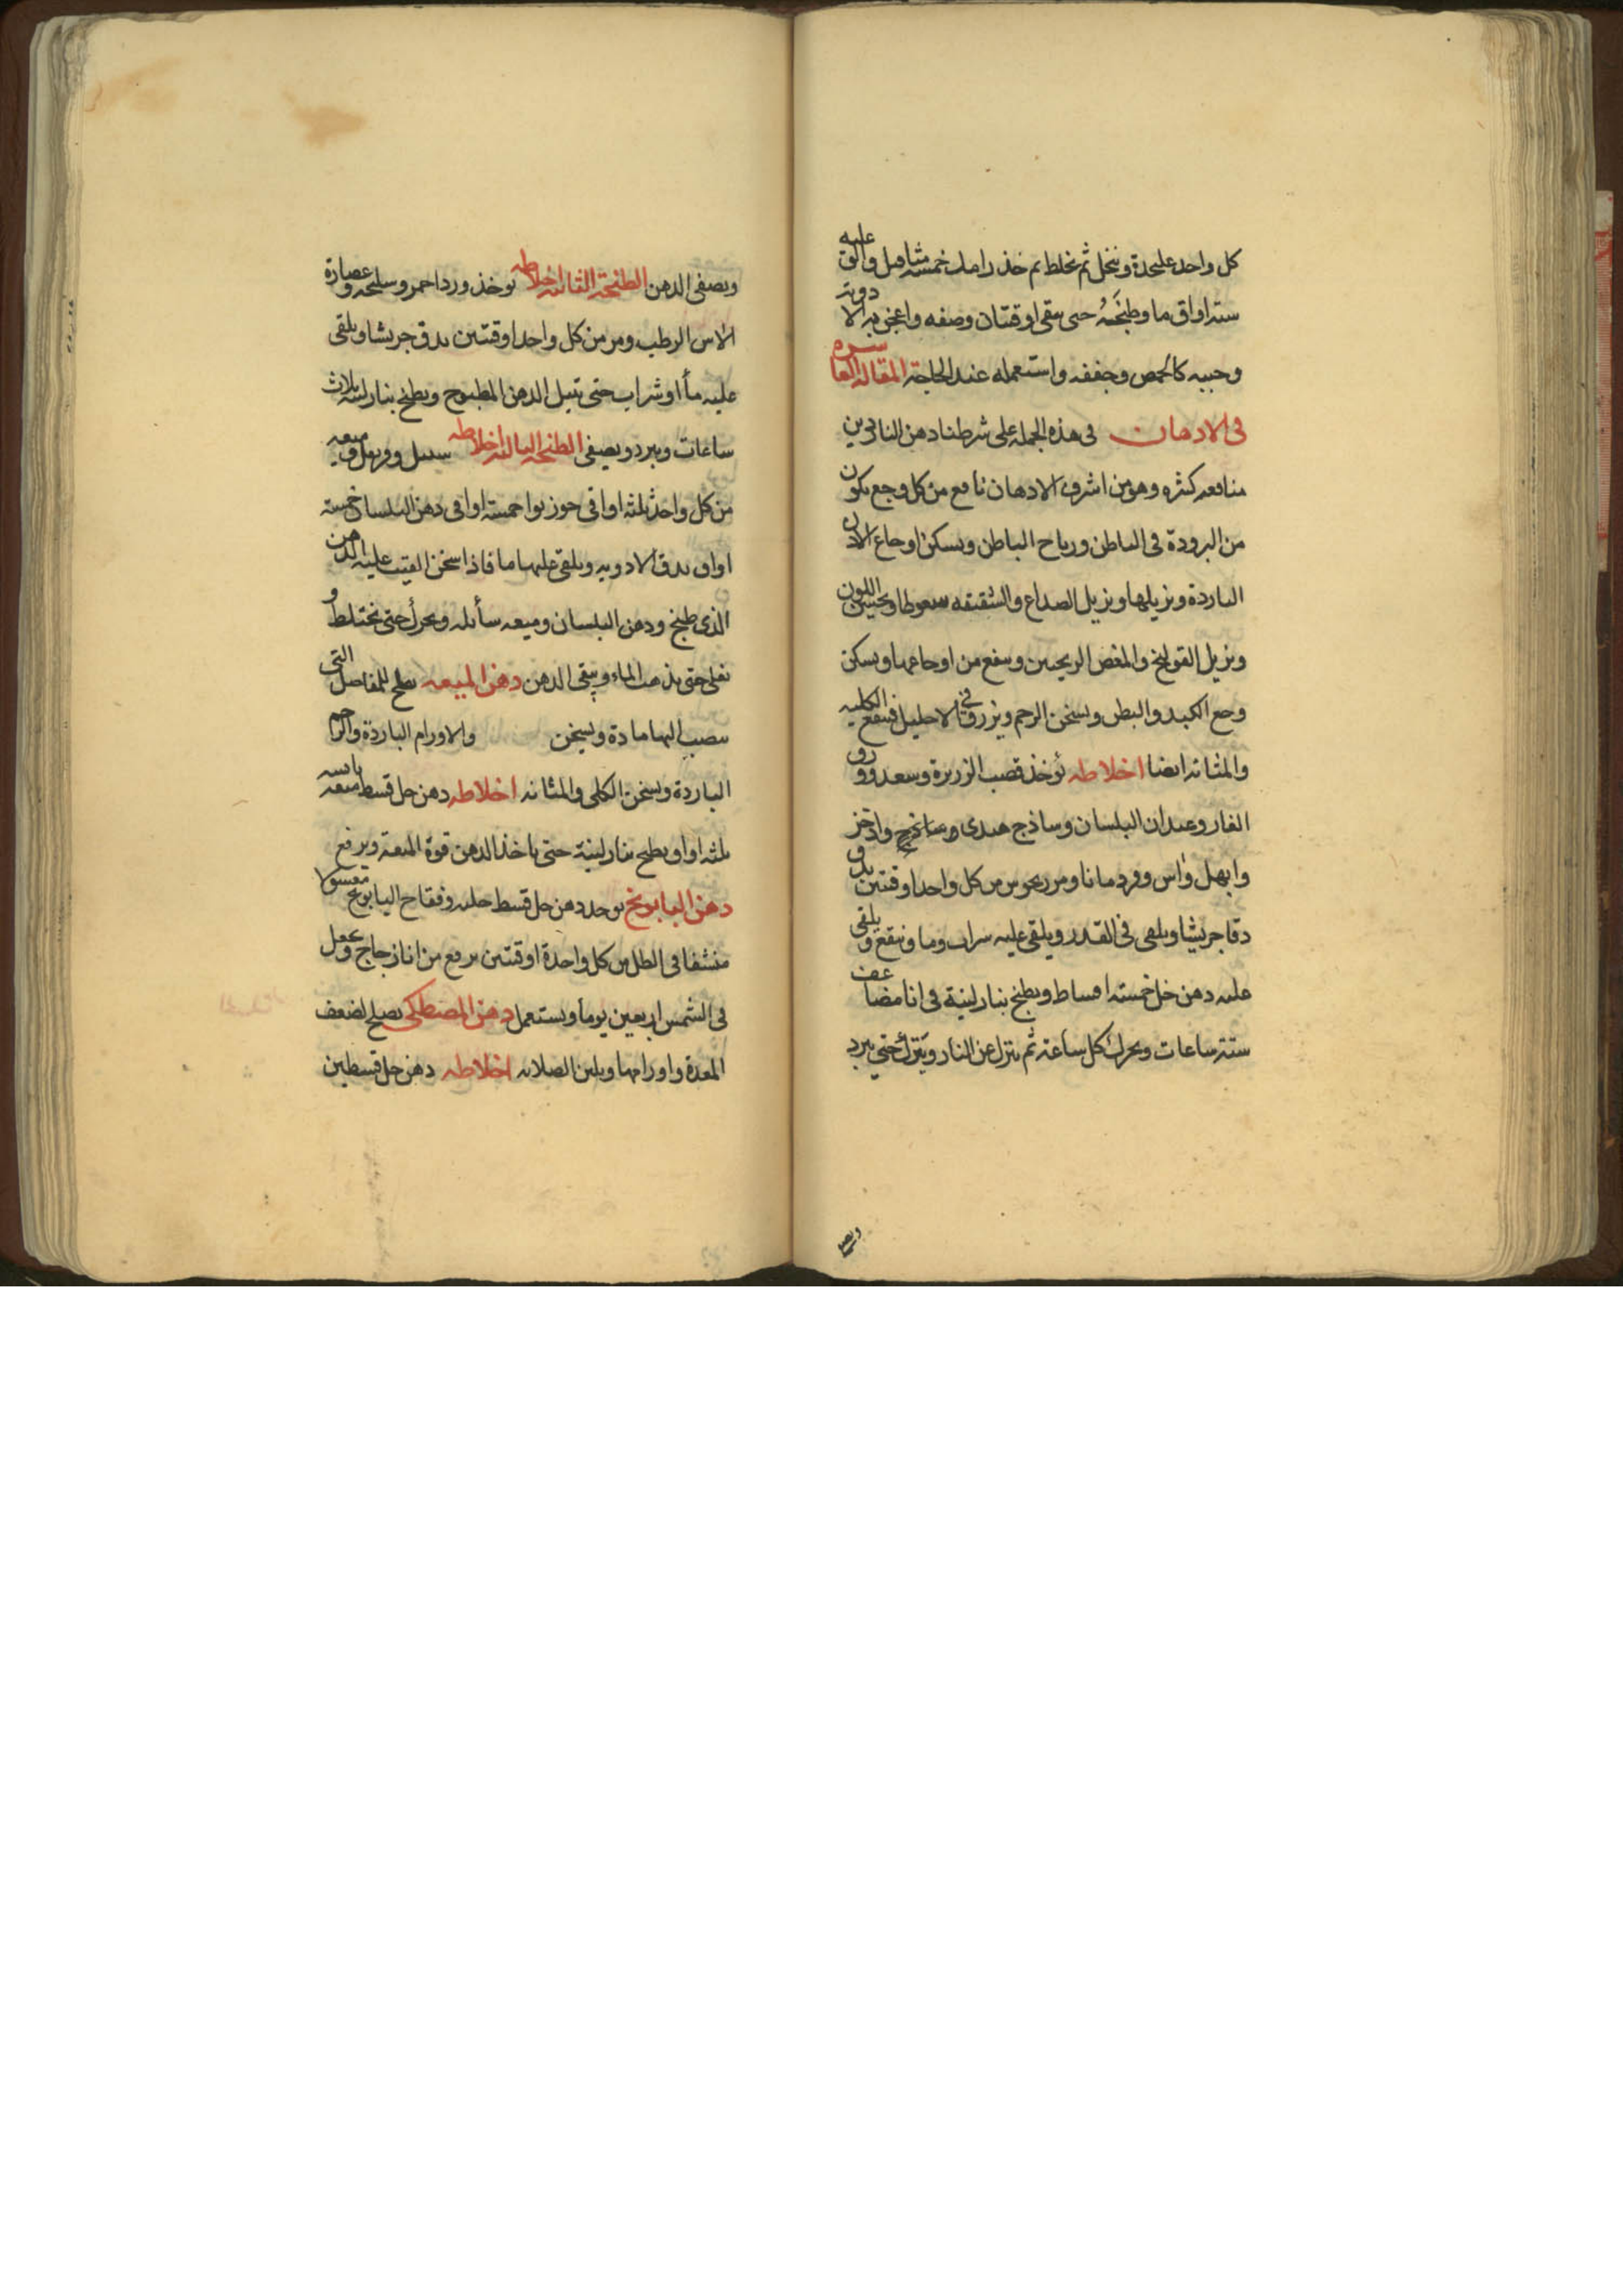 كل واحد علىحدة وينخل ثم يخلط ثم خذ رامك خمسة مثاقيل والق عليه
ستة اواق ما وطبخه حتى يبقى اوقتان وصفه واعجن به الادوية
وحببه كالحمص وجففه واستعمله عند الحاجة المقالة العاشرة
فى الادهان فى هذه الجملة على شرطنا دهن الناردين
منافعه كثيره وهو من اشرف الادهان نافع من كل وجع يكون
من البرودة فى الباطن ورياح الباطن ويسكن اوجاع الاذن
الباردة ويزيلها ويزيل الصداع والشقيقه سعوطا ويحسن اللون
ويزيل القولنج والمغص الريحيين وينفع من اوجاعها ويسكن
وجع الكبد والبطن ويسخن الرحم ويزرق فى الاحليل فينفع الكليه
والمثانه ايضا اخلاطه يؤخذ قصب الزريرة وسعد وورق
الغار وعيدان البلسان وساذج هندى واذخر
وابهل وآس وقردمانا ومرزنجوش من كل واحد اوقتين يدق
دقا جريشا ويلقى فى القدر ويلقى عليه شراب وما وينقع ويلقى
عليه دهن خل خمسة اقساط ويطبخ بنار لينة فى انا مضاعف
ستة ساعات ويحرك كل ساعة ثم ينزل عن النار ويترك حتى يبرد
ويصفى
ويصفى الدهن الطبخة الثانية اخلاطه يوخذ ورد احمر وسليخه وعصارة
الاس الرطب ومر من كل واحد اوقتين يدق جريشا ويلقى
عليه مأ او شراب حتى يبتل الدهن المطبوخ ويطبخ بنار لينه ثلاث
ساعات ويبرد ويصفى الطبخة الثالثة اخلاطه سنبل وقرنفل وميعه
من كل واحد ثلثه اواقى جوز بوا خمسة اواقى دهن البلسان خمسة
اواق يدق الادويه ويلقى عليها ما فاذا سخن القيت عليه الدهن
الذى طبخ ودهن البلسان وميعه سأيله ويحرك حتى يختلط و
يغلى حتى يذهب الماء ويبقى الدهن دهن الميعه يصلح للمفاصل التى
ينصب اليها مادة ويسخن والاورام الباردة والرحم
الباردة ويسخن الكلى والمثانه اخلاطه دهن حل قسط ميعه يابسه
ثلثه اواق ويطبخ بنار لينة حتى ياخذ الدهن قوة الميعة ويرفع
دهن البابونج يوخذ دهن حل قسط حلبه وفقاح البابونج مغسولا
منشفا فى الظل من كل واحدة اوقتين يرفع من انا زجاج ويجعل
فى الشمس اربعين يوما ويستعمل دهن المصطكى يصلح لضعف
المعدة واورامها ويلين الصلابه اخلاطه دهن حل قسطين